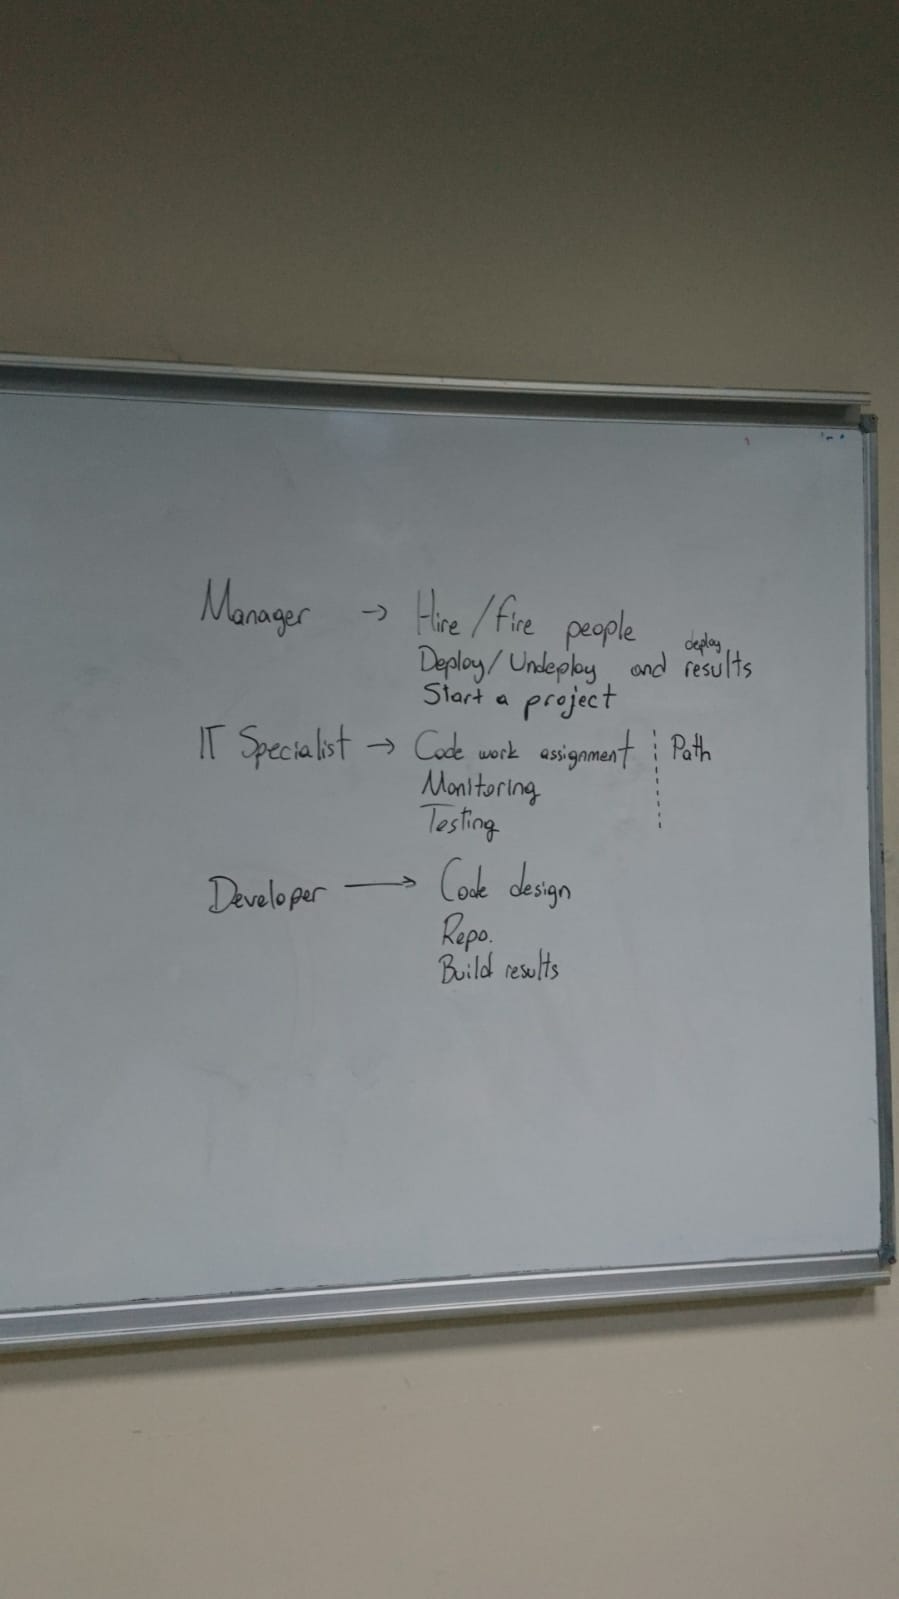 Manager → Hire / Fire people
deploy
Deploy / Undeploy and results
Start a project
IT Specialist → Code work assignment ¦ Path
Monitoring
Testing
Developer → Code design
Repo.
Build results